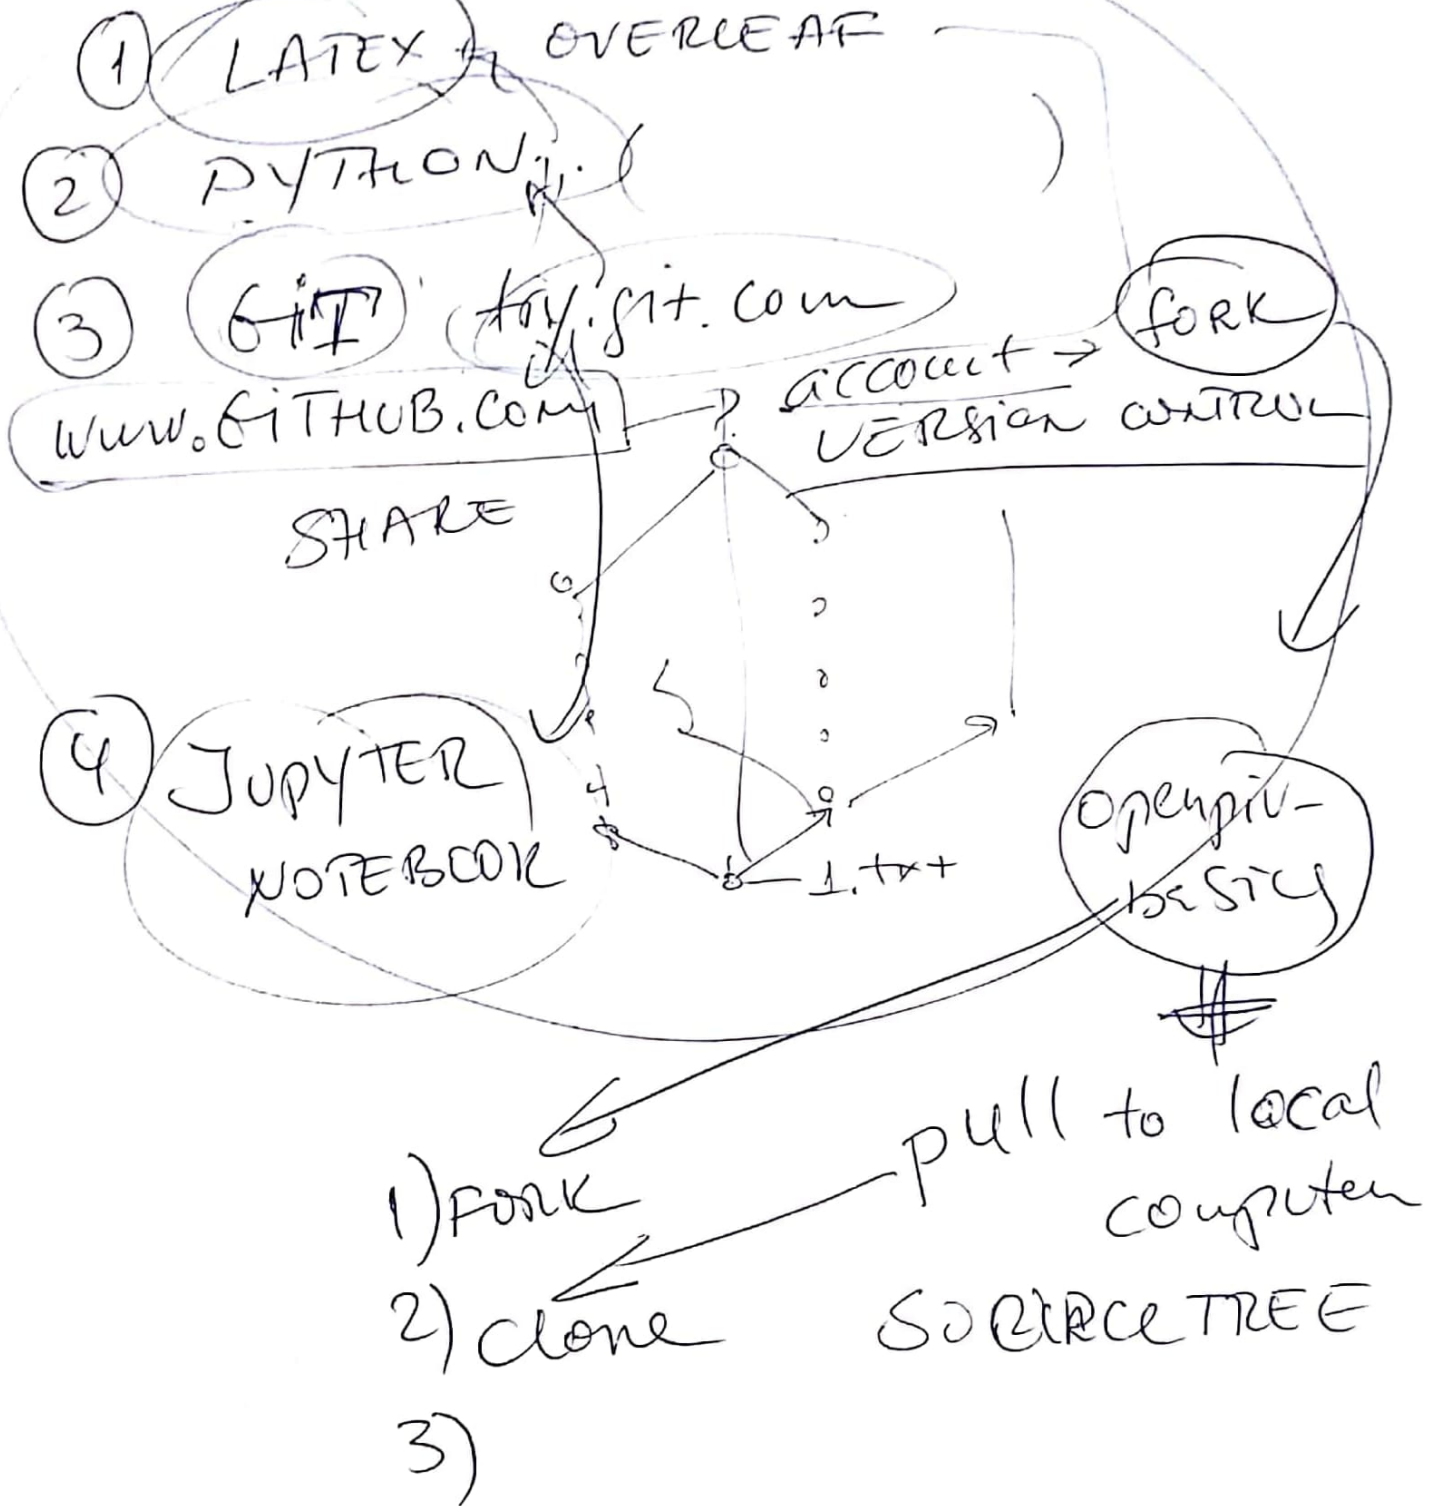 1 LATEX, OVERLEAF
2 PYTHON. ( )
3 GiT try.git.com FORK
account →
www.GiTHUB.COM VERSiON CONTROL
SHARE
4 JUPYTER
NOTEBOOK
1.txt
openpiv-
pull to local
computer
1) FORK
2) Clone
SOURCE TREE
3)